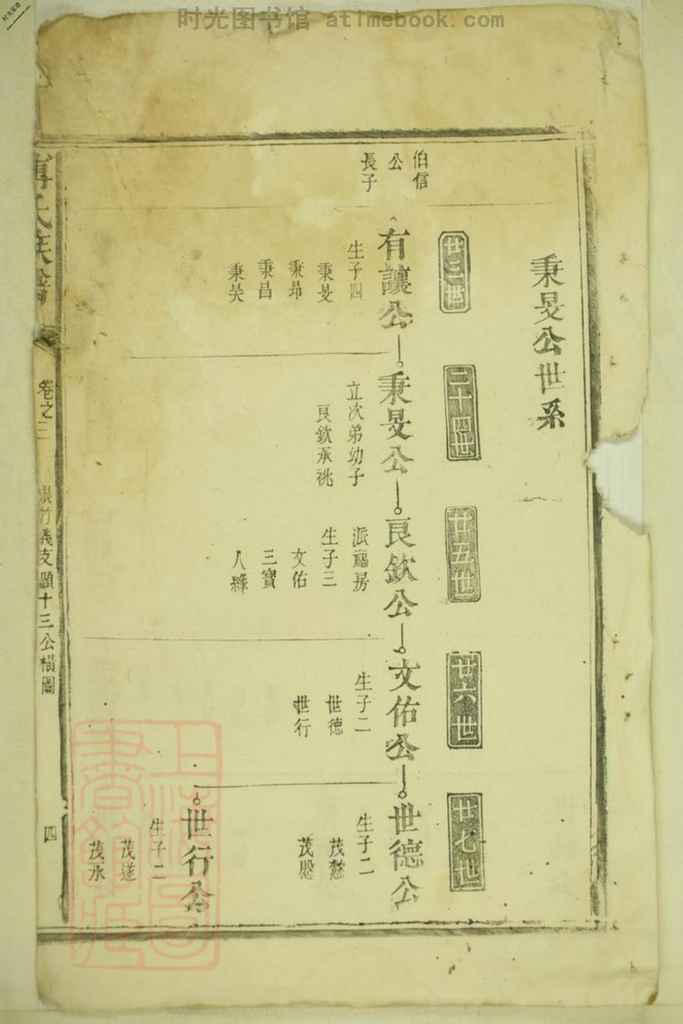 时光图书馆 atimebook.com
秉旻公世系
廿三世
二十四世
廿五世
廿六世
廿七世
伯信
公
長子
有讓公
生子四
秉旻
秉昴
秉昌
秉昊
秉旻公
立次弟幼子
良欽承祧
良欽公
派
房
生子三
文佑
三寶
八
文佑公
生子二
世德
世行
世德公
生子二
茂
茂
世行公
生子二
茂蓮
茂承
氏族譜
卷之三
竹義支
十三公橫圖
四
上海圖書館藏